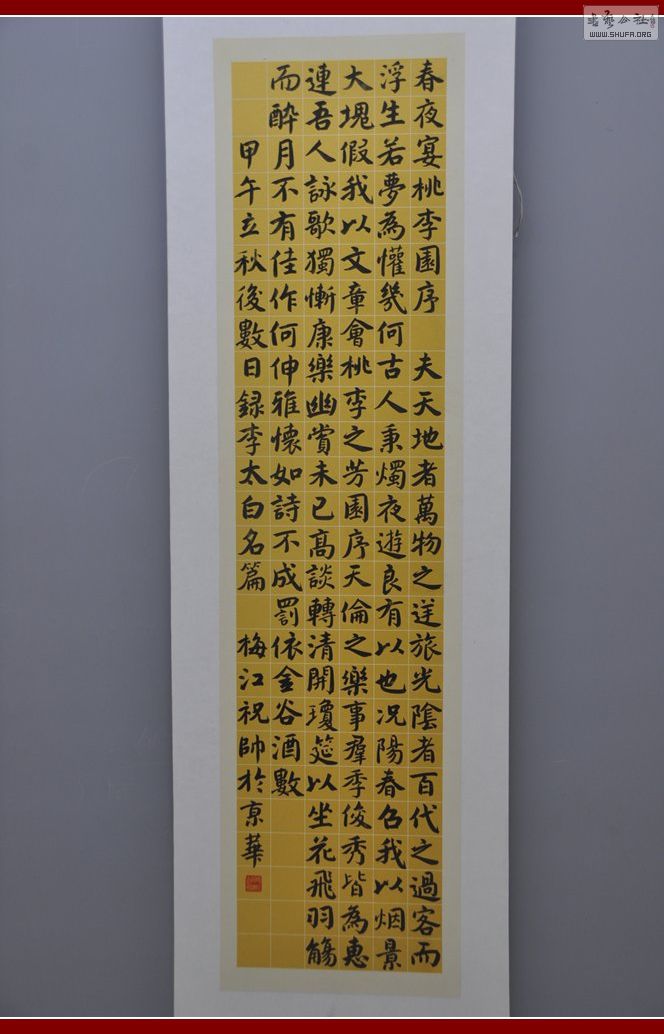 春夜宴桃李園序 夫天地者萬物之逆旅光陰者百代之過客而
浮生若夢為懽幾何古人秉燭夜遊良有以也况陽春召我以烟景
大塊假我以文章會桃李之芳園序天倫之樂事羣季俊秀皆為惠
連吾人詠歌獨慚康樂幽賞未已高談轉清開瓊筵以坐花飛羽觴
而醉月不有佳作何伸雅懷如詩不成罰依金谷酒數
甲午立秋後數日録李太白名篇 梅江祝帥於京華
WWW.SHUFA.ORG